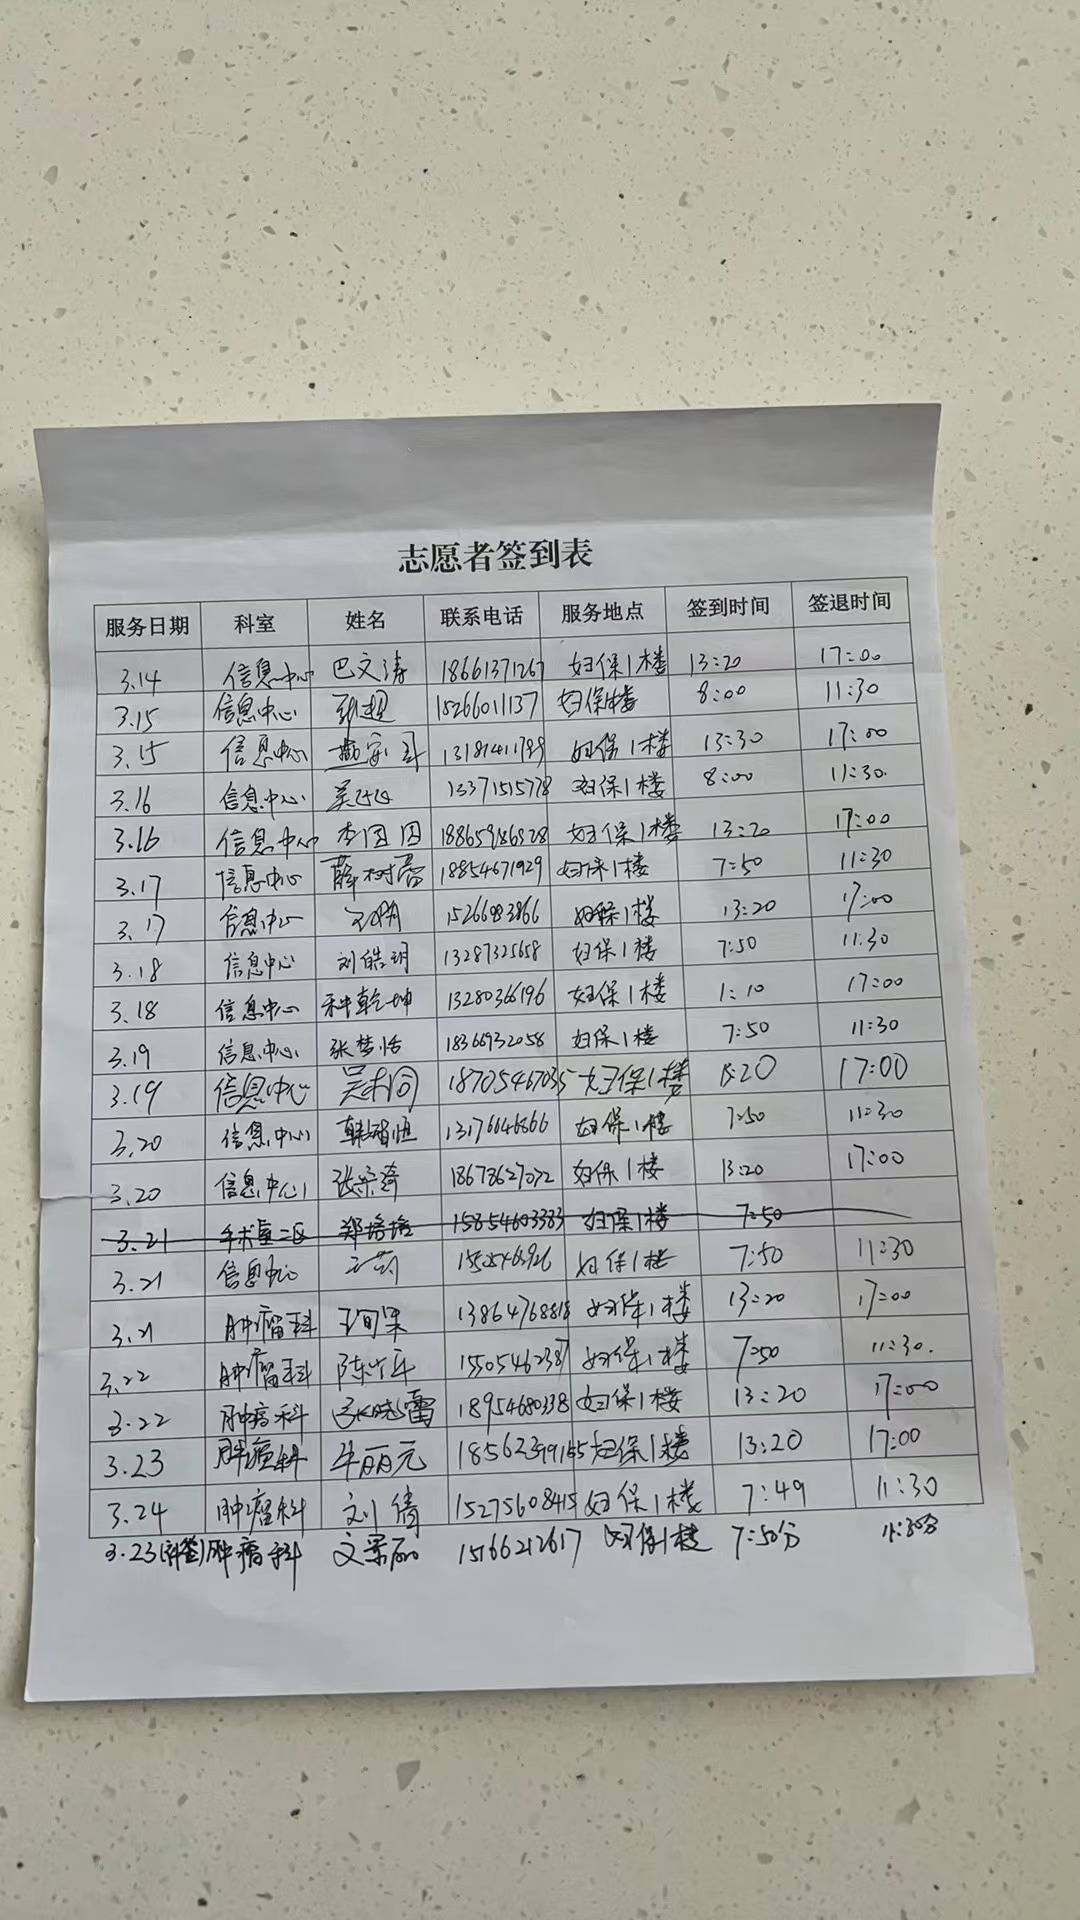 志愿者签到表
服务日期 科室 姓名 联系电话 服务地点 签到时间 签退时间
3.14 信息中心 巴文涛 18661371267 妇保1楼 13:20 17:00
3.15 信息中心 15266011137 妇保1楼 8:00 11:30
3.15 信息中心 妇保1楼 13:30 17:00
3.16 信息中心 13371515778 妇保1楼 8:00 11:30
3.16 信息中心 李囡囡 妇保1楼 13:20 17:00
3.17 信息中心 薛树蕾 18854671929 妇保1楼 7:50 11:30
3.17 信息中心 妇保1楼 13:20 17:00
3.18 信息中心 刘皓玥 13287325658 妇保1楼 7:50 11:30
3.18 信息中心 乾坤 13280366196 妇保1楼 1:10 17:00
3.19 信息中心 张梦恬 18366932058 妇保1楼 7:50 11:30
3.19 信息中心 18705467035 妇保1楼 13:20 17:00
3.20 信息中心 13176646866 妇保1楼 7:50 11:30
3.20 信息中心 18678627072 妇保1楼 13:20 17:00
3.21 手术室二区 郑培培 15854603383 妇保1楼 7:50
3.21 信息中心 妇保1楼 7:50 11:30
3.21 肿瘤科 13864768818 妇保1楼 13:20 17:00
3.22 肿瘤科 15505462387 妇保1楼 7:50 11:30.
3.22 肿瘤科 张晓雷 18954680338 妇保1楼 13:20 17:00
3.23 肿瘤科 牛丽元 妇保1楼 13:20 17:00
3.24 肿瘤科 刘倩 15275608415 妇保1楼 7:49 11:30
3.23(补签) 肿瘤科 15166212617 妇保1楼 7:50分 11:30分